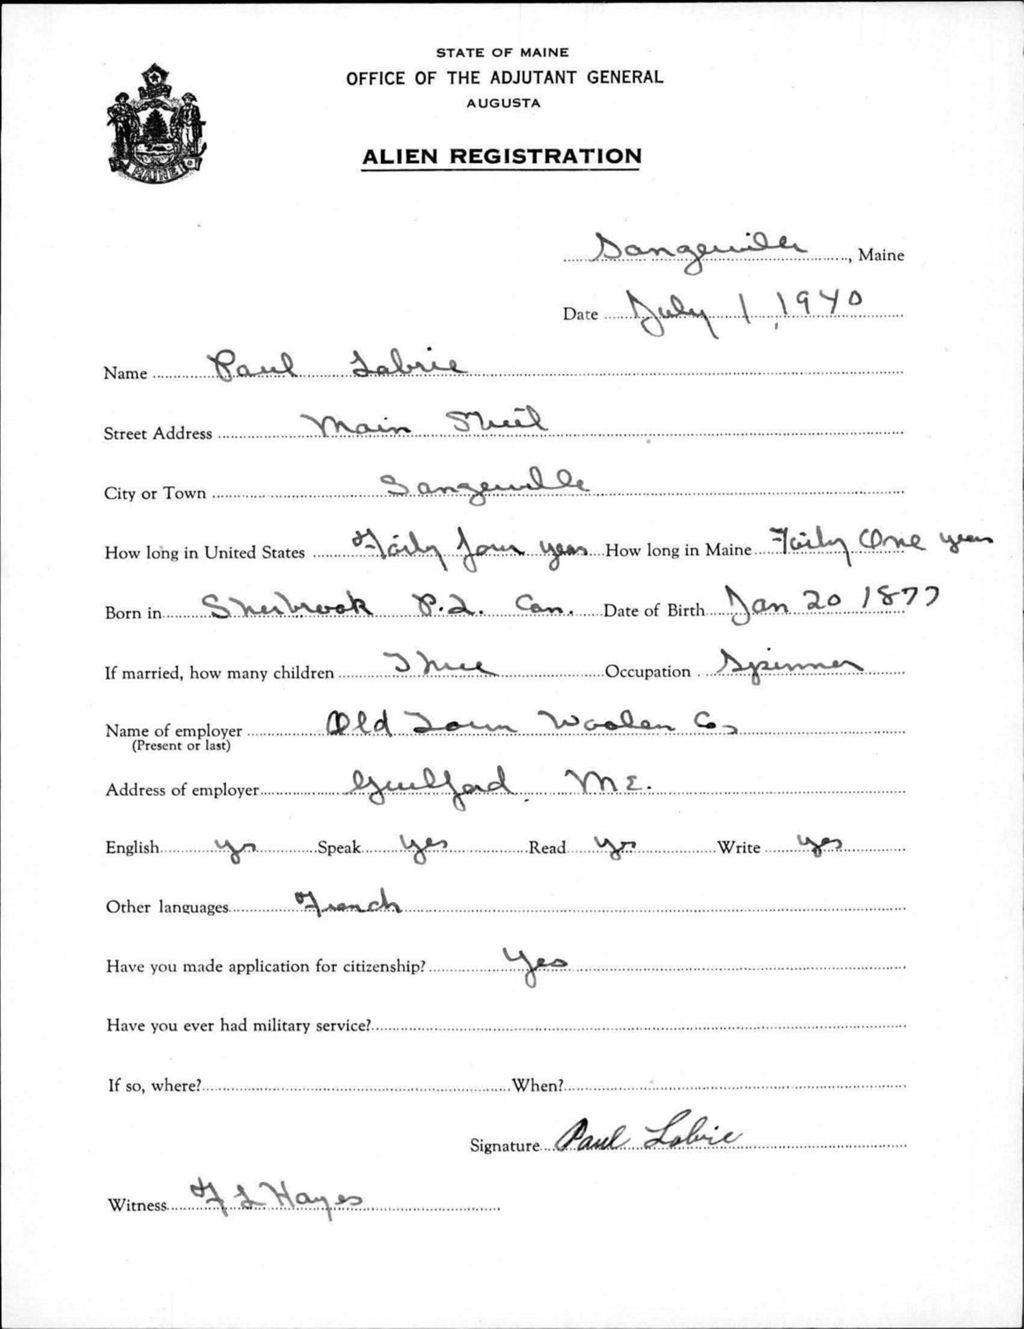 STATE OF MAINE
OFFICE OF THE ADJUTANT GENERAL
AUGUSTA
ALIEN REGISTRATION
MAINE
Sangerville, Maine
Date July 1, 1940
Name Paul Labrie
Street Address Main Street
City or Town Sangerville
How long in United States Forty four years How long in Maine Forty One years
Born in Sherbrook P.Q. Can. Date of Birth Jan 20 1877
If married, how many children Three Occupation Spinner
Name of employer Old Town Woolen Co,
(Present or last)
Address of employer Guilford, ME.
English yes Speak yes Read yes Write yes
Other languages French
Have you made application for citizenship? Yes
Have you ever had military service?
If so, where? When?
Signature Paul Labrie
Witness F L Hayes